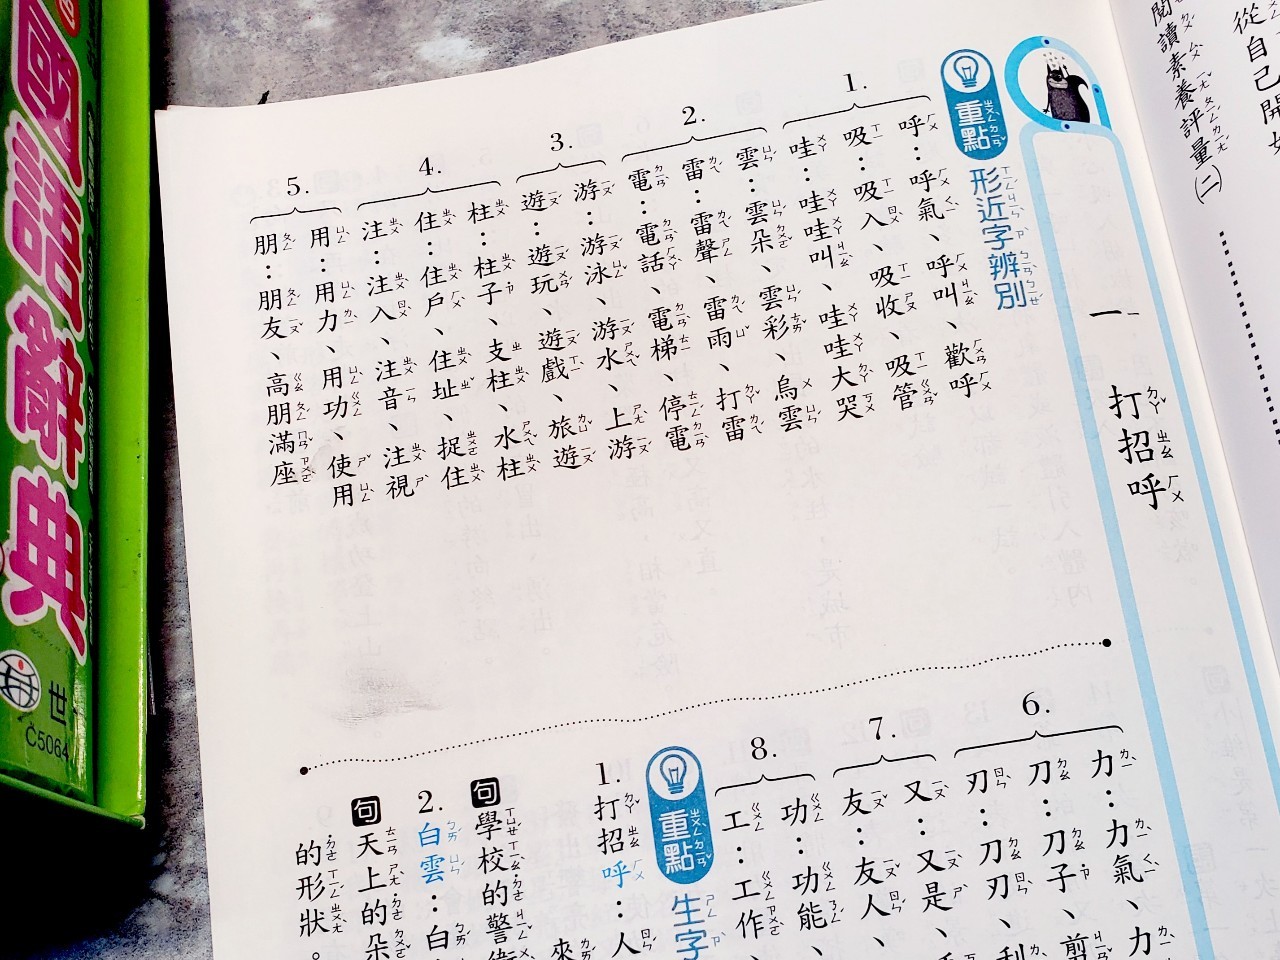 閱讀素養評量(二)
從自己開
一 打招呼
重點 形近字辨別
1.
呼：呼氣、呼叫、歡呼
吸：吸入、吸收、吸管
哇：哇哇叫、哇哇大哭
2.
雲：雲朵、雲彩、烏雲
雷：雷聲、雷雨、打雷
電：電話、電梯、停電
3.
游：游泳、游水、上游
遊：遊玩、遊戲、旅遊
4.
柱：柱子、支柱、水柱
住：住戶、住址、捉住
注：注入、注音、注視
5.
用：用力、用功、使用
朋：朋友、高朋滿座
6.
力：力氣、力
刀：刀子、剪
刃：刀刃、利
7.
又：又是、
友：友人、
8.
功：功能、
工：工作、
重點 生字
1.
打招呼：人
來
句 學校的警衛
2.
白雲：白
句 天上的朵
的形狀。
國語辭典
世
C5064